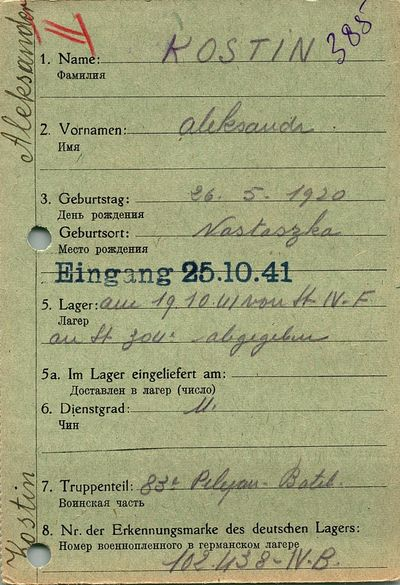 Aleksander
Kostin
II
385
1. Name: KOSTIN
Фамилия
2. Vornamen: Aleksandr
Имя
3. Geburtstag: 26. 5. 1920
День рождения
Geburtsort: Nastaszka
Место рождения
Eingang 25.10.41
5. Lager: am 19.10.41 von St. IV-F
Лагерь
an St. 304 abgegeben
5a. Im Lager eingeliefert am:
Доставлен в лагер (число)
6. Dienstgrad:
Чин
7. Truppenteil: 83
Воинская часть
8. Nr. der Erkennungsmarke des deutschen Lagers:
Номер военнопленного в германском лагере
102438-IV-B.